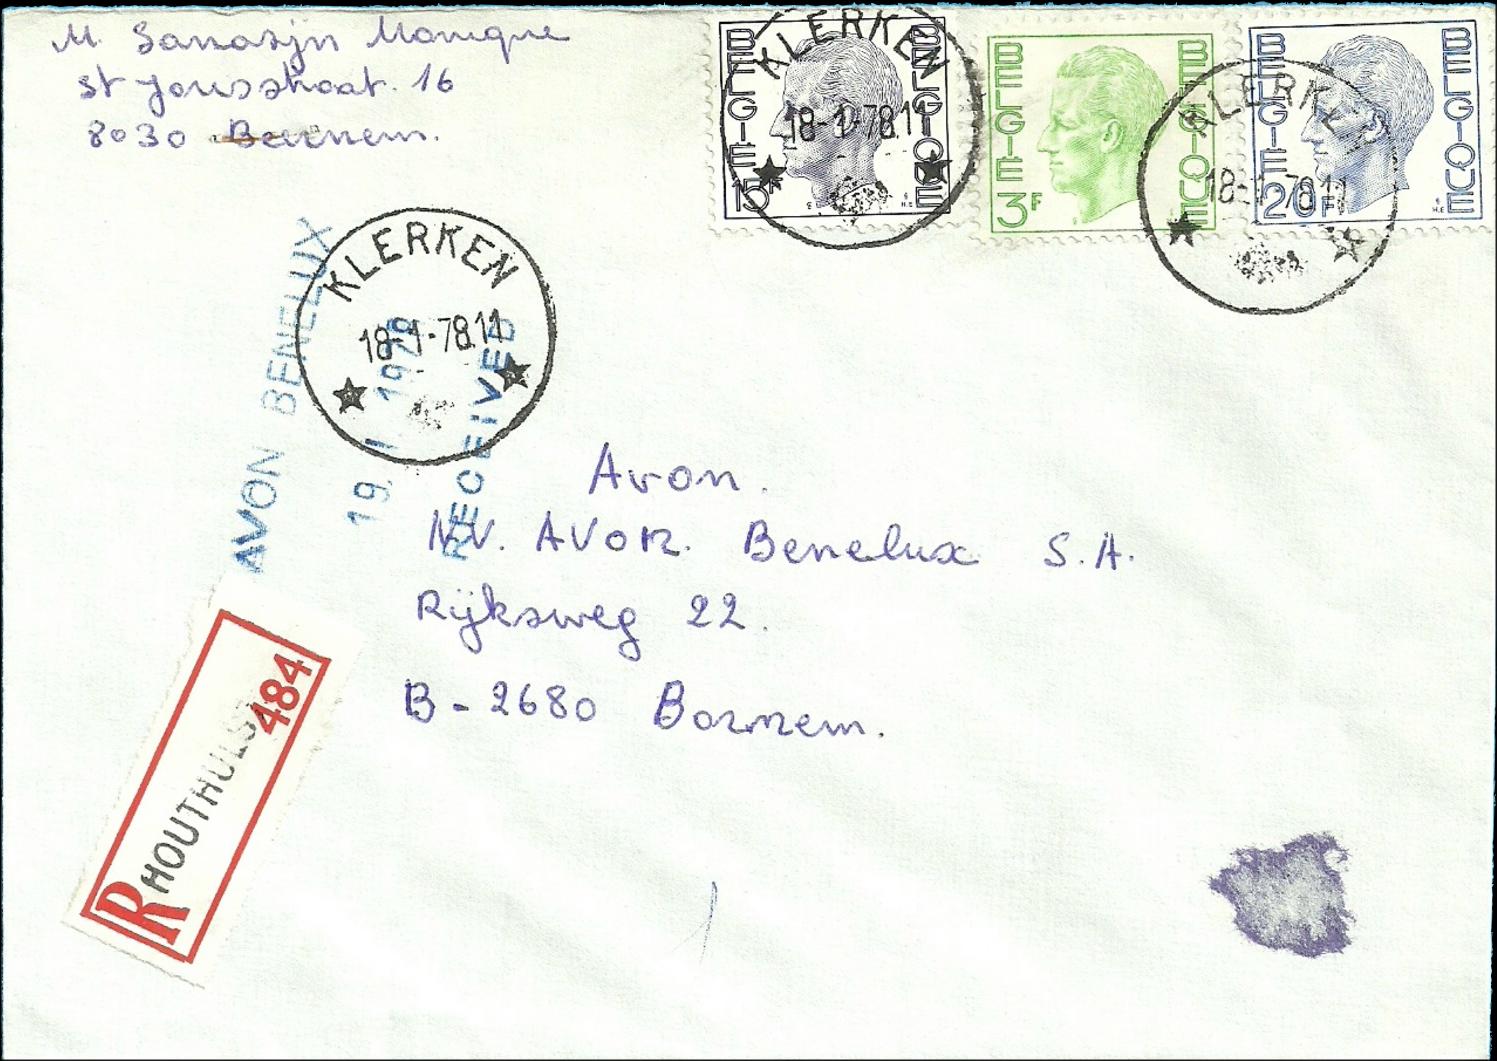 M. Sanasijn Monique
St Jorisstraat. 16
8030 Beernem.
BELGIE BELGIQUE
15F
KLERKEN
18-1-78.11
BELGIE BELGIQUE
3F
BELGIE BELGIQUE
20F
KLERKEN
18-1-78.11
KLERKEN
18-1-78.11
AVON BENELUX
19. I 1978
RECEIVED
Avon.
N.V. AVON. Benelux S.A.
Rijksweg 22.
B-2680 Bornem.
R HOUTHULST 484